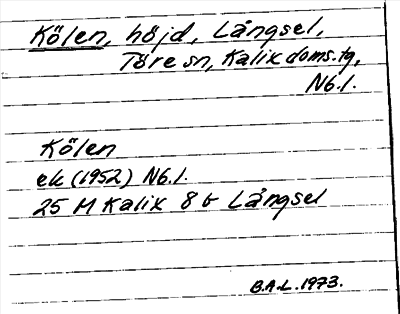 Kölen, höjd, Långsel,
Töre sn, Kalix doms.tg,
Nb.l.
Kölen
ek (1952) Nb.l.
25 M Kalix 8 b Långsel
B.A.L. 1973.